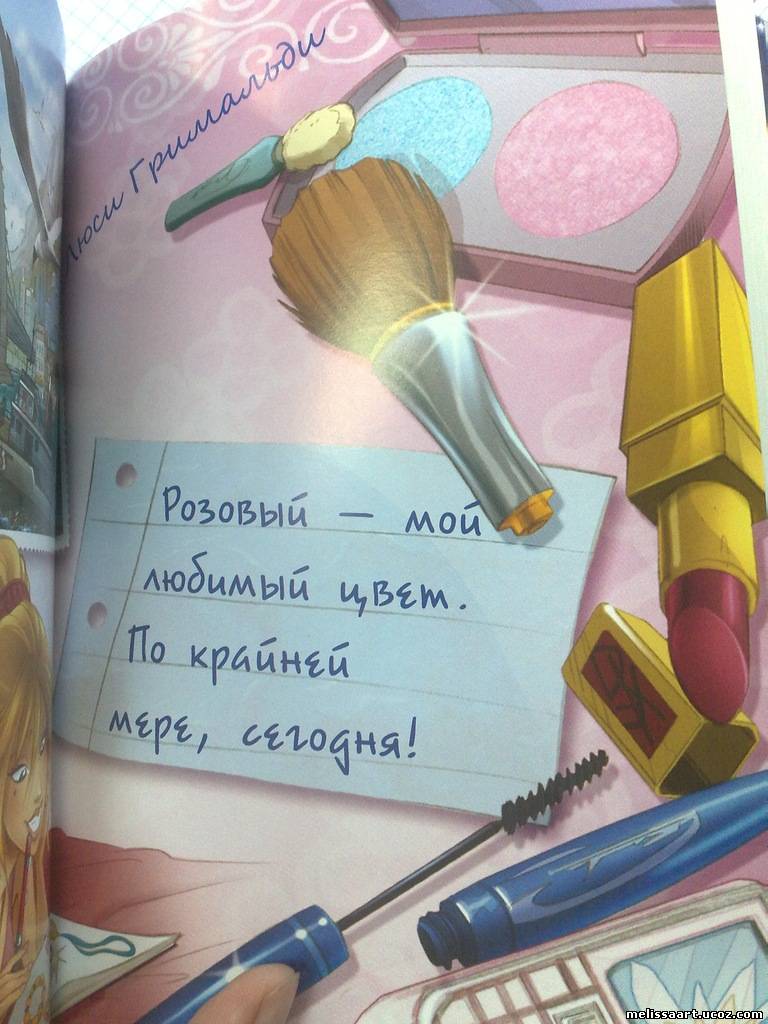 Люси Гримальди
Розовый — мой
любимый цвет.
По крайней
мере, сегодня!
melissaart.ucoz.com